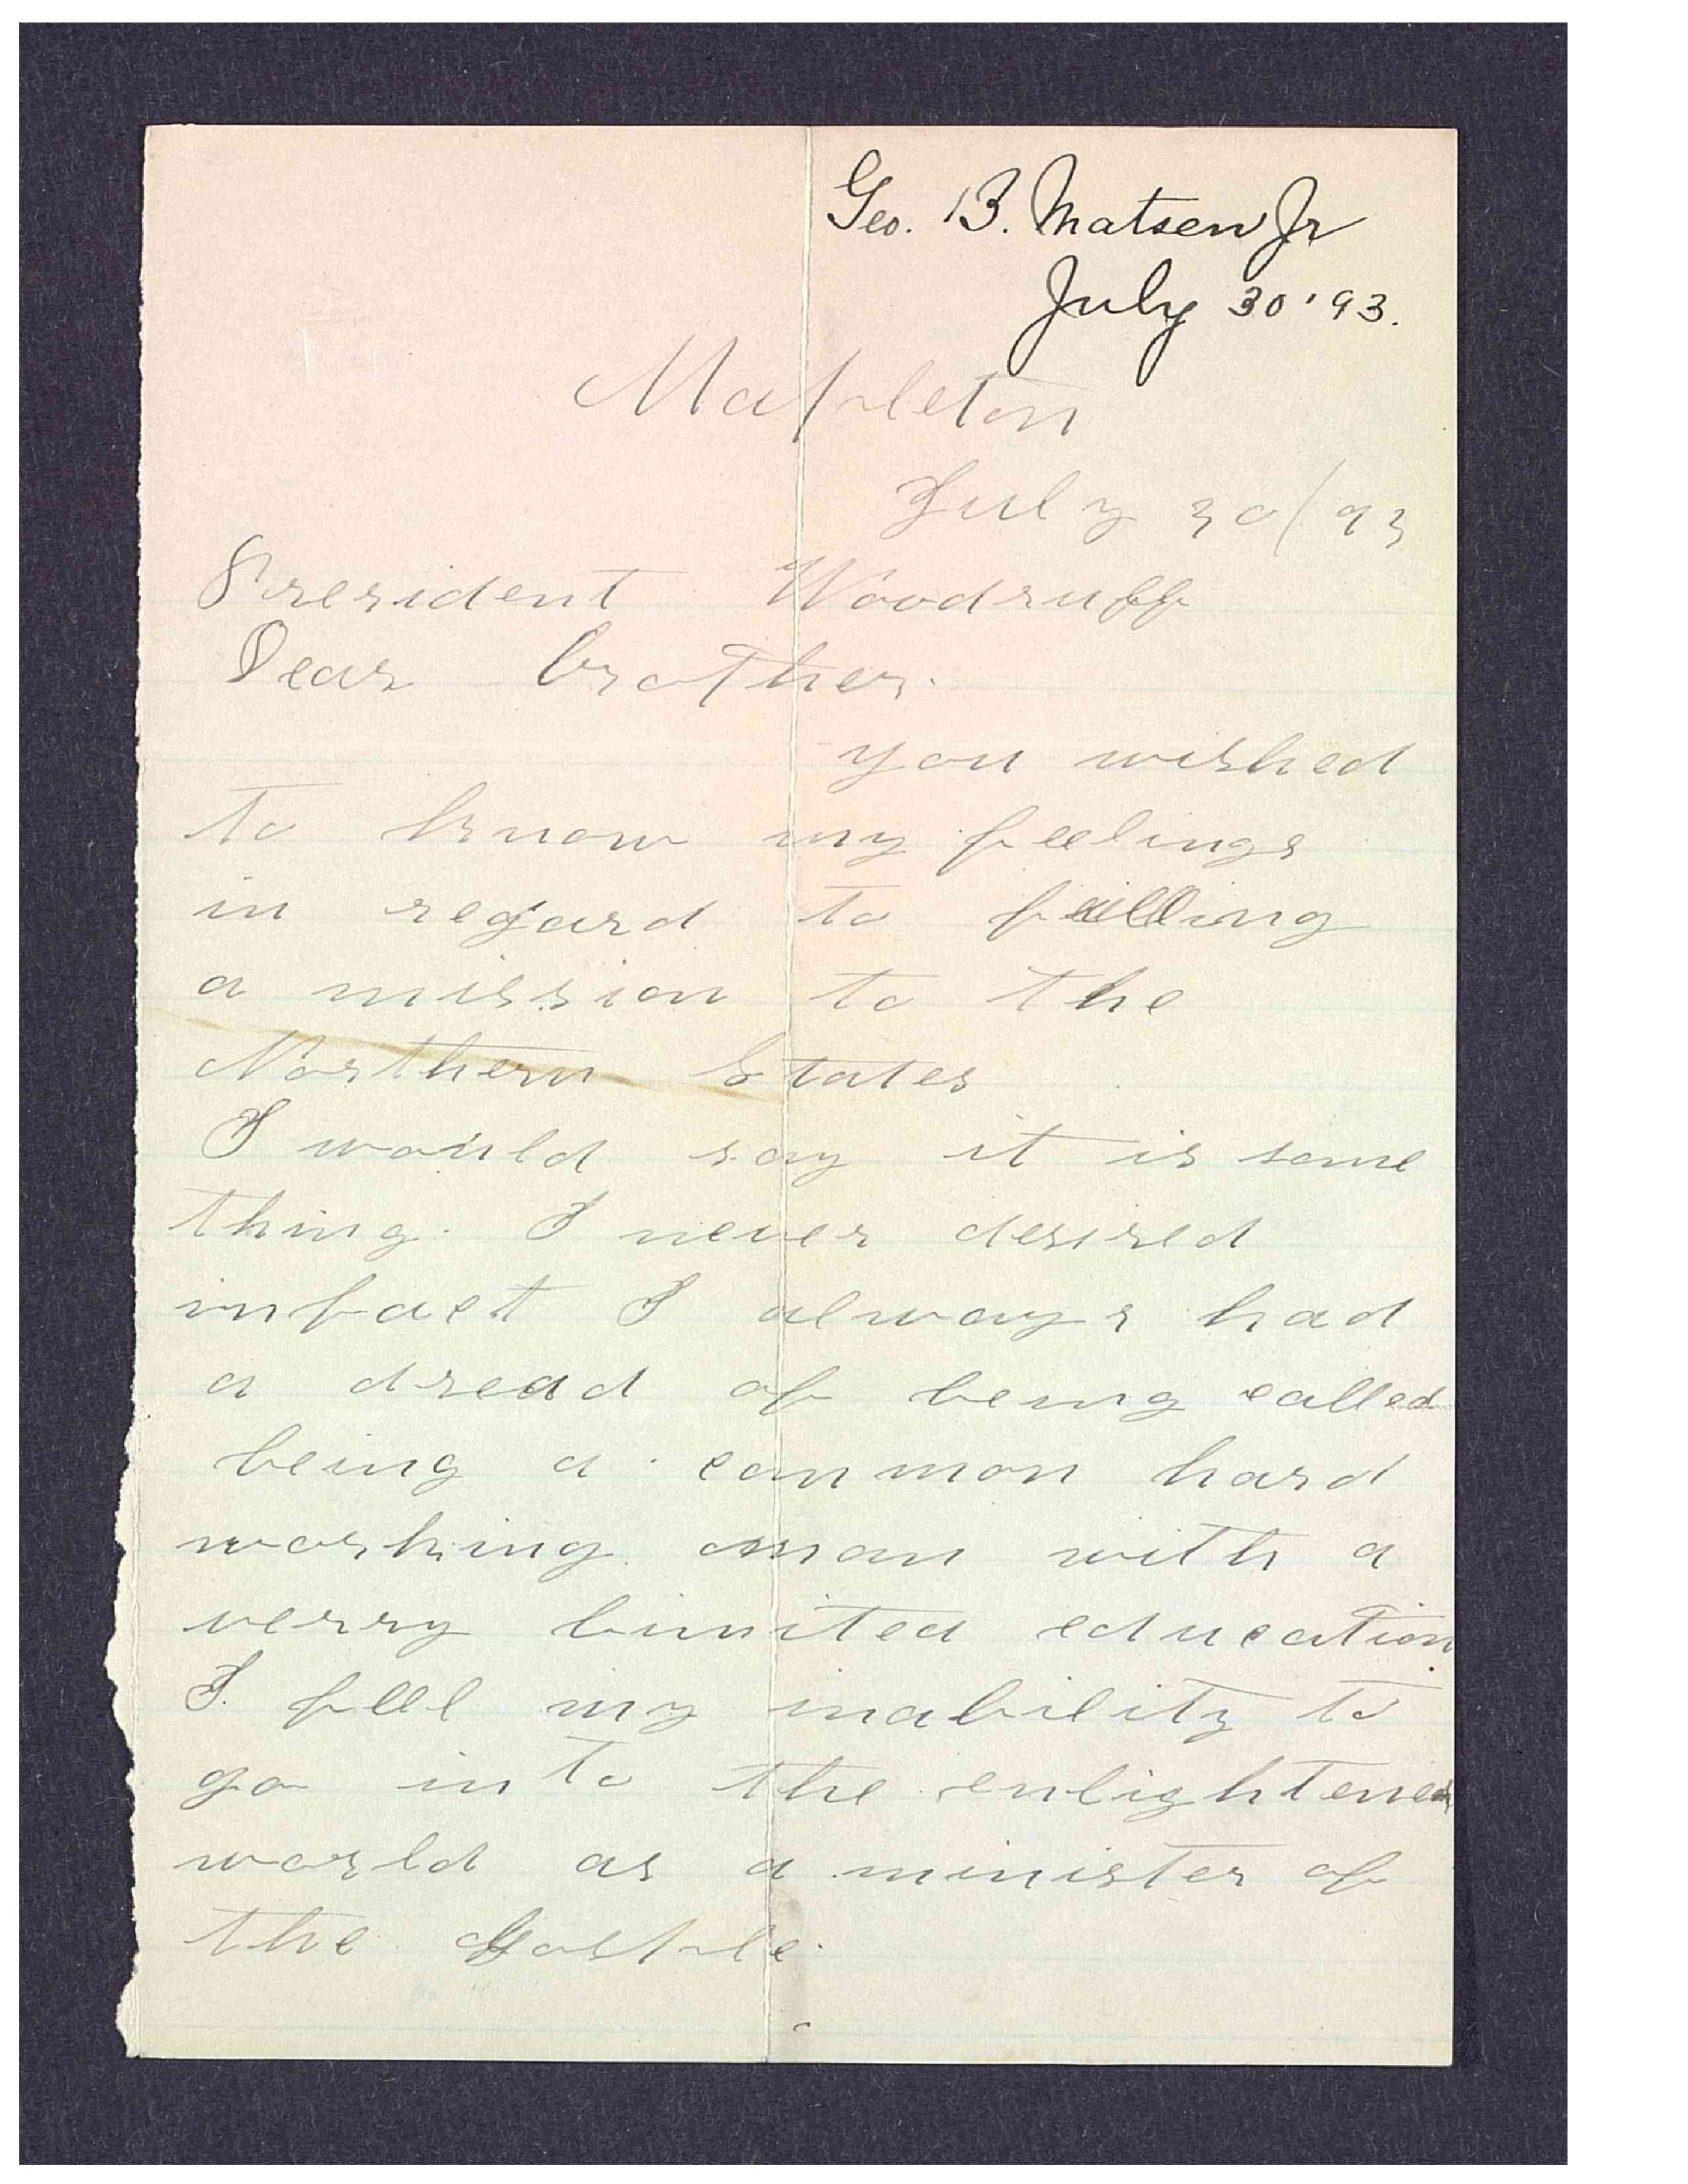 Geo. B. Matsen Jr
July 30 '93.
Mapleton
July 30/93
President Woodruff
Dear brother.
you wished
to know my feelings
in regard to filling
a mission to the
Northern States
I would say it is some
thing. I never desired
infact I always had
a dread of being called
being a common hard
working man with a
verry limited education
I feel my inability to
go into the enlightened
world as a minister of
the Gosple.